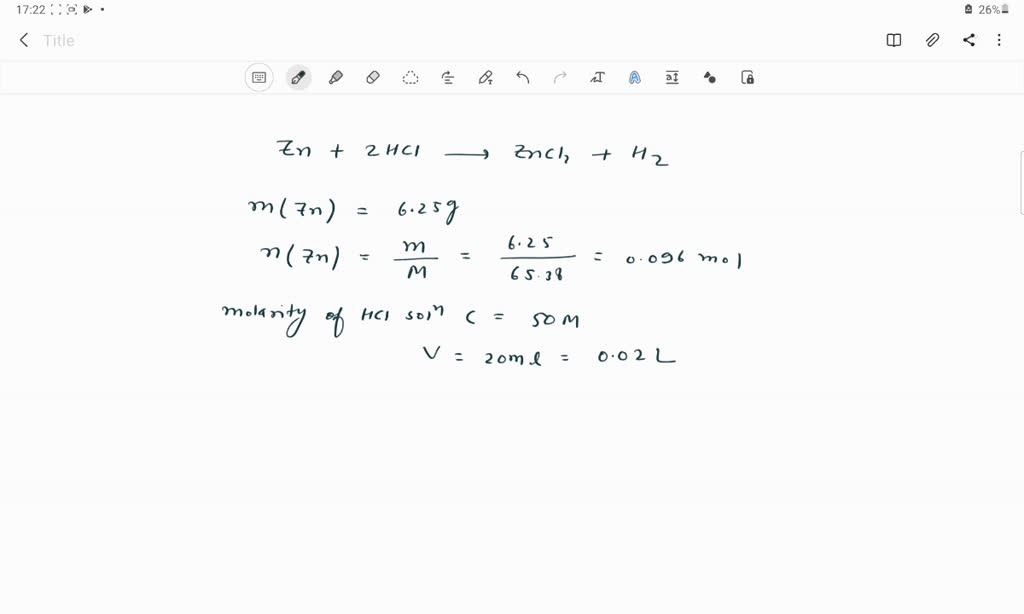 17:22 26%
Title
Zn + 2HCl → ZnCl2 + H2
m(Zn) = 6.25g
n(Zn) = m/M = 6.25/65.38 = 0.096 mol
molarity of HCl solⁿ C = 50M
V = 20ml = 0.02L